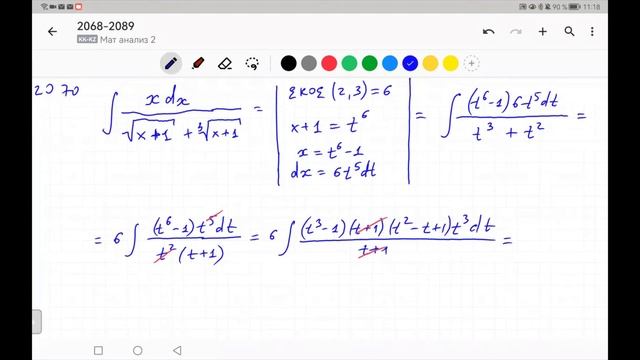 90 % 11:18
2068-2089
KK-KZ Мат анализ 2
2070 ∫ x dx / (√(x+1) + ³√(x+1)) = | ЕКОЕ (2,3) = 6 | = ∫ (t⁶-1) 6t⁵dt / (t³ + t²) =
x+1 = t⁶
x = t⁶-1
dx = 6t⁵dt
= 6 ∫ (t⁶-1) t⁵dt / (t² (t+1)) = 6 ∫ (t³-1)(t+1)(t²-t+1)t³dt / (t+1) =